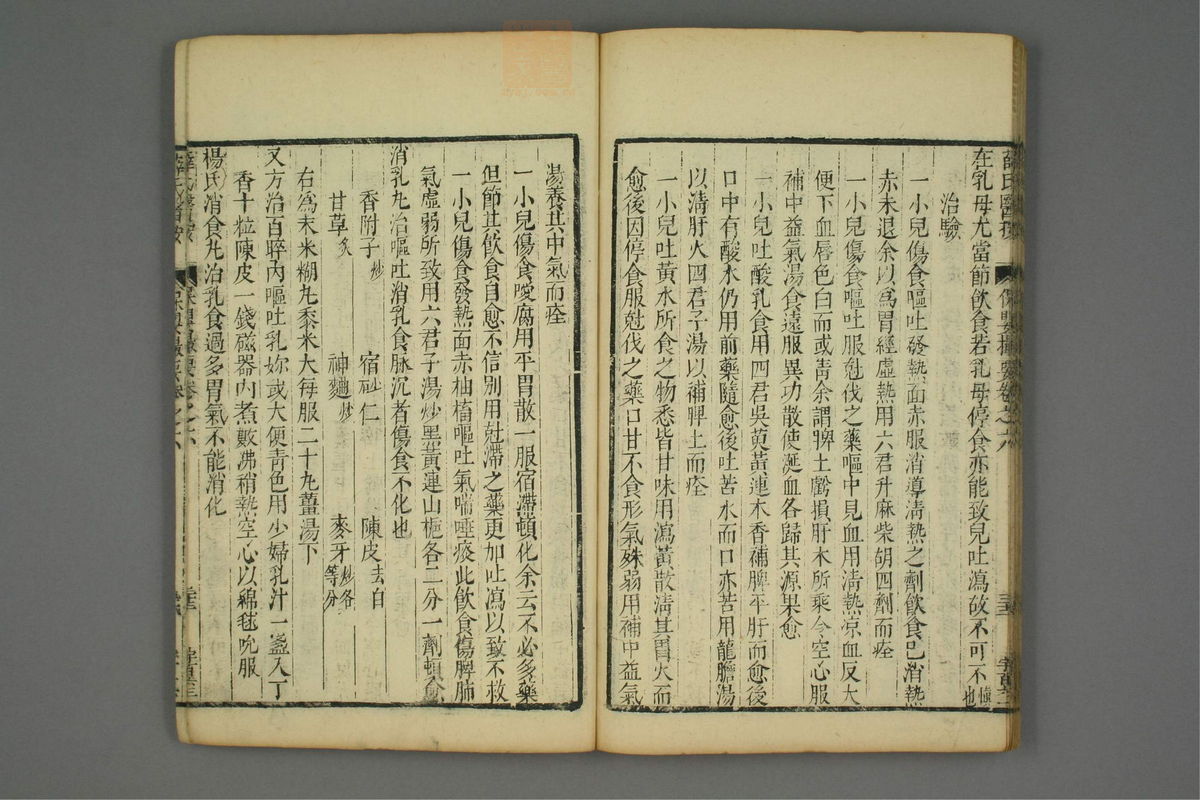 薛氏醫按 保嬰撮要卷之六
在乳母尤當節飲食若乳母停食亦能致兒吐瀉故不可不慎也
治驗
一小兒傷食嘔吐發熱面赤服消導清熱之劑飲食已消熱
赤未退余以爲胃經虛熱用六君升麻柴胡四劑而痊
一小兒傷食嘔吐服尅伐之藥嘔中見血用清熱凉血反大
便下血唇色白而或青余謂脾土虧損肝木所乘令空心服
補中益氣湯食遠服異功散使涎血各歸其源果愈
一小兒吐酸乳食用四君吳茰黃連木香補脾平肝而愈後
口中有酸水仍用前藥隨愈後吐苦水而口亦苦用龍膽湯
以淸肝火四君子湯以補脾土而痊
一小兒吐黃水所食之物悉皆甘味用瀉黃散淸其胃火而
愈後因停食服尅伐之藥口甘不食形氣殊弱用補中益氣
湯養其中氣而痊
一小兒傷食噯腐用平胃散一服宿滯頓化余云不必多藥
但節其飲食自愈不信别用尅滯之藥更加吐瀉以致不救
一小兒傷食發熱面赤柚搐嘔吐氣喘唾痰此飲食傷脾肺
氣虛弱所致用六君子湯炒黑黃連山梔各二分一劑頓愈
消乳丸治嘔吐消乳食脉沉者傷食不化也
香附子炒 宿砂仁 陳皮去白
甘草炙 神麯炒 麥牙炒各等分
右爲末米糊丸黍米大每服二十丸薑湯下
又方治百晬內嘔吐乳妳或大便青色用少婦乳汁一盞入丁
香十粒陳皮一錢磁器內煮數沸稍熱空心以綿毬吮服
楊氏消食丸治乳食過多胃氣不能消化
薛氏醫按 保嬰撮要卷之六